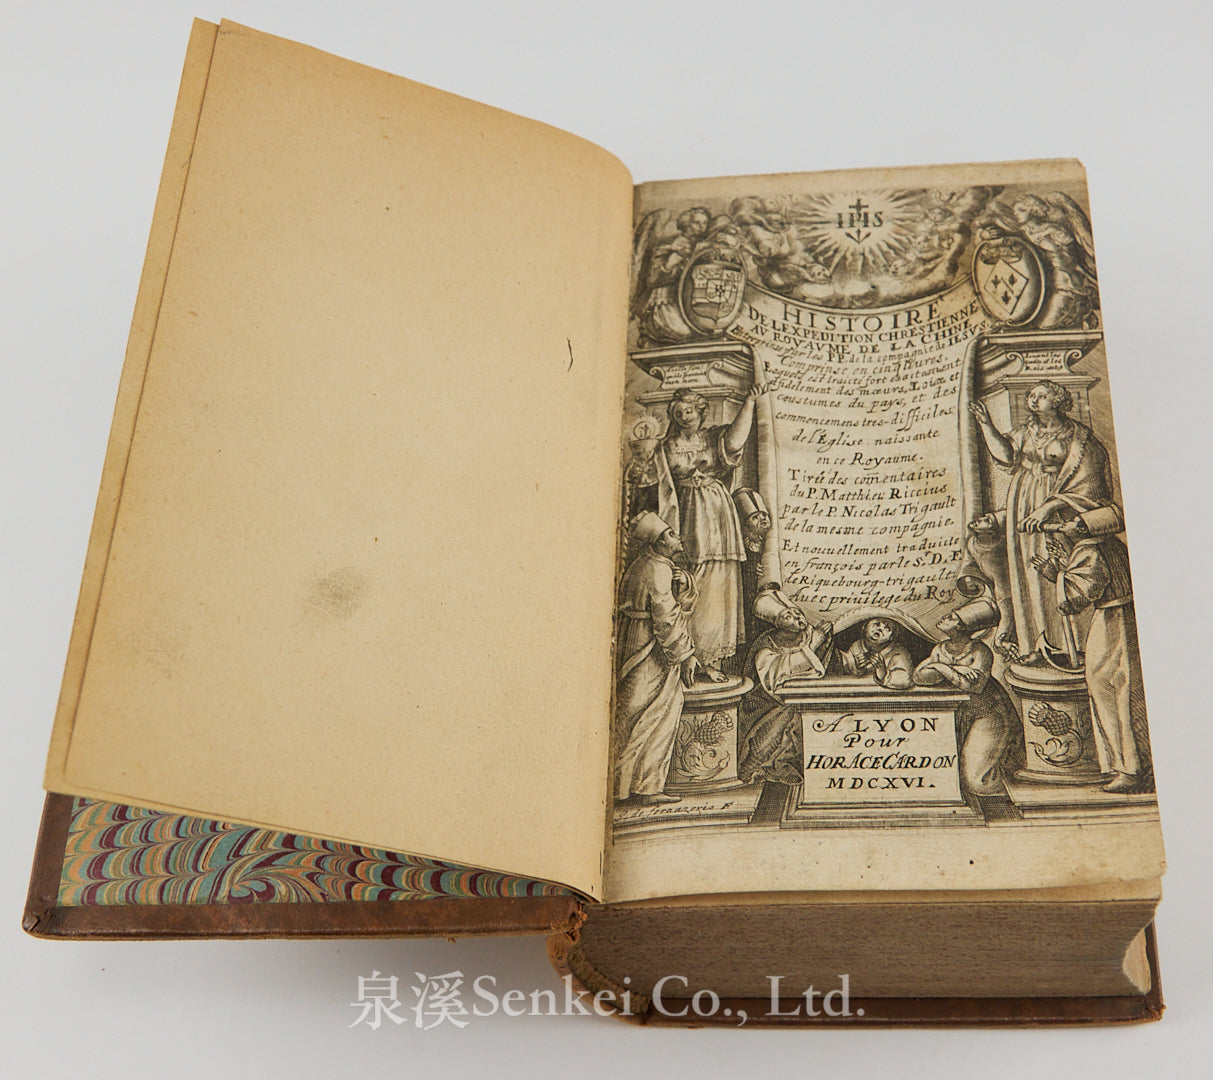 IHS
HISTOIRE
DE L'EXPEDITION CHRESTIENNE
AV ROYAUME DE LA CHINE
Entreprinse par les PP. de la compagnie de IESVS.
Comprinse en cinq livres.
Esquels est traicté fort exactement
et fidelement des mœurs, Loix et
coustumes du pays, et des
commencemens tres-difficiles
de l'Eglise naissante
en ce Royaume.
Tirée des com̄entaires
du P. Matthieu Riccius
par le P. Nicolas Trigault
de la mesme compagnie.
Et nouvellement traduicte
en françois par le Sr. D. F.
de Riquebourg-trigault.
Avec privilege du Roy
A LYON
Pour
HORACE CARDON
MDCXVI.
泉溪Senkei Co., Ltd.